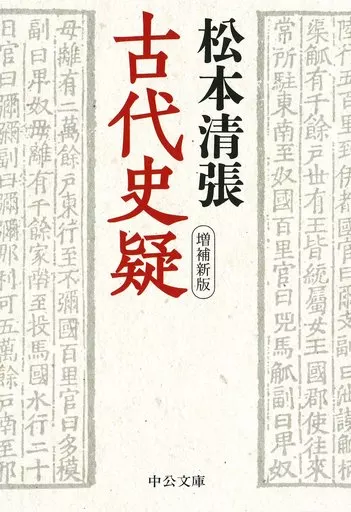 松本清張
古代史疑
増補新版
渠觚有千餘戸世有王皆統屬女王國郡使往來
常所駐東南至奴國百里官曰兕馬觚副曰卑奴
母離有二萬餘戸東行至不彌國百里官曰多模
副曰卑奴母離有千餘家南至投馬國水行二十
日官曰彌彌副曰彌彌那利可五萬餘戸南至邪
中公文庫